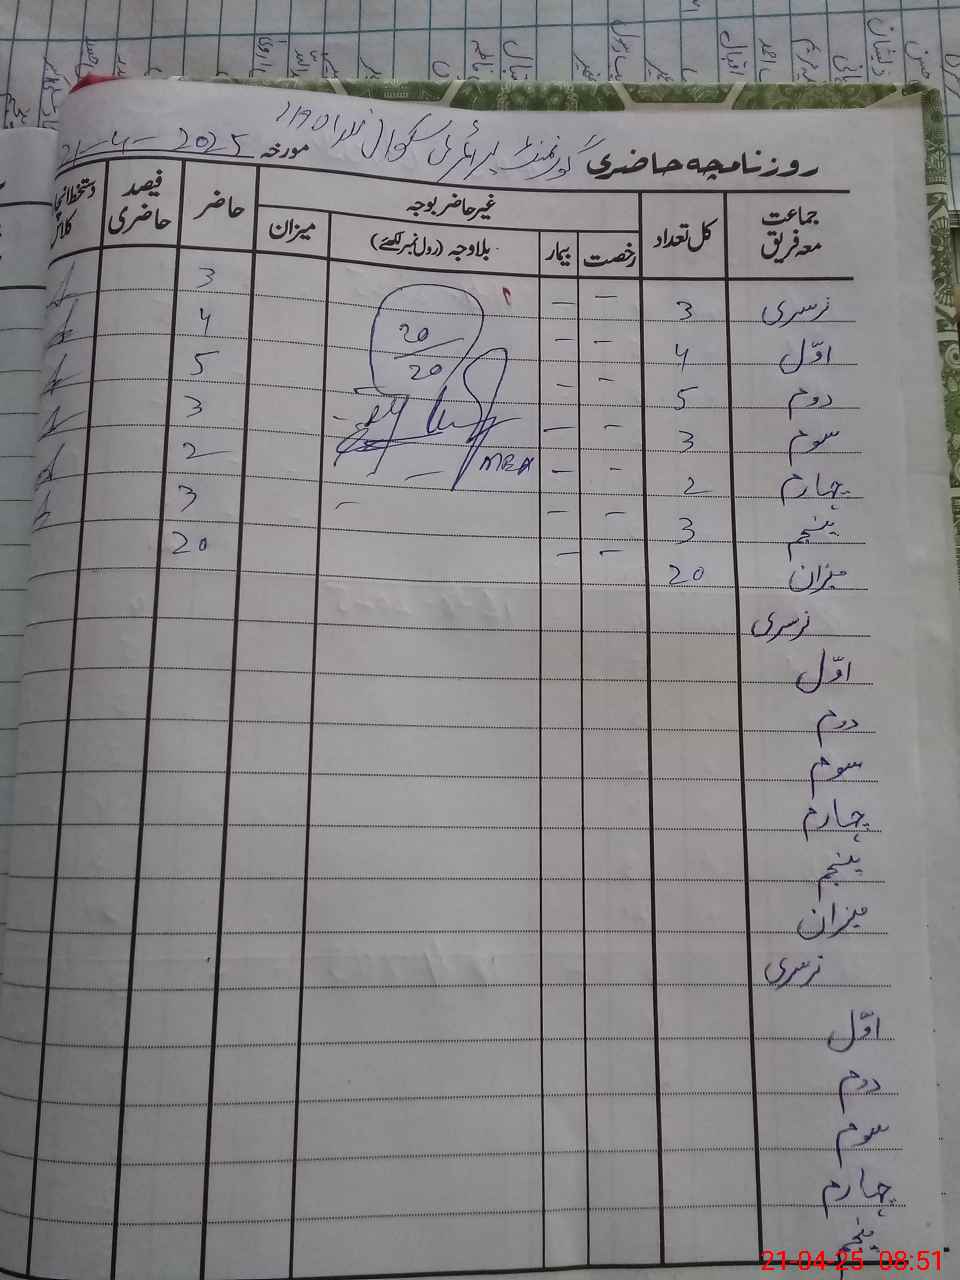 روزنامچہ حاضری گورنمنٹ پرائمری سکول مورخہ 21-4-2025
جماعت معہ فریق کل تعداد غیر حاضر بوجہ حاضر فیصد حاضری دستخط انچارج کلاس
رخصت بیمار بلاوجہ (رول نمبر لکھئے) میزان
نرسری 3 - - 3
اوّل 4 - - 4
دوم 5 - - 5
سوم 3 - - 3
چہارم 2 - - 2
پنجم 3 - - - 3
میزان 20 - - 20
20
20
MEA
نرسری
اوّل
دوم
سوم
چہارم
پنجم
میزان
نرسری
اوّل
دوم
سوم
چہارم
پنجم
21-04-25 08:51